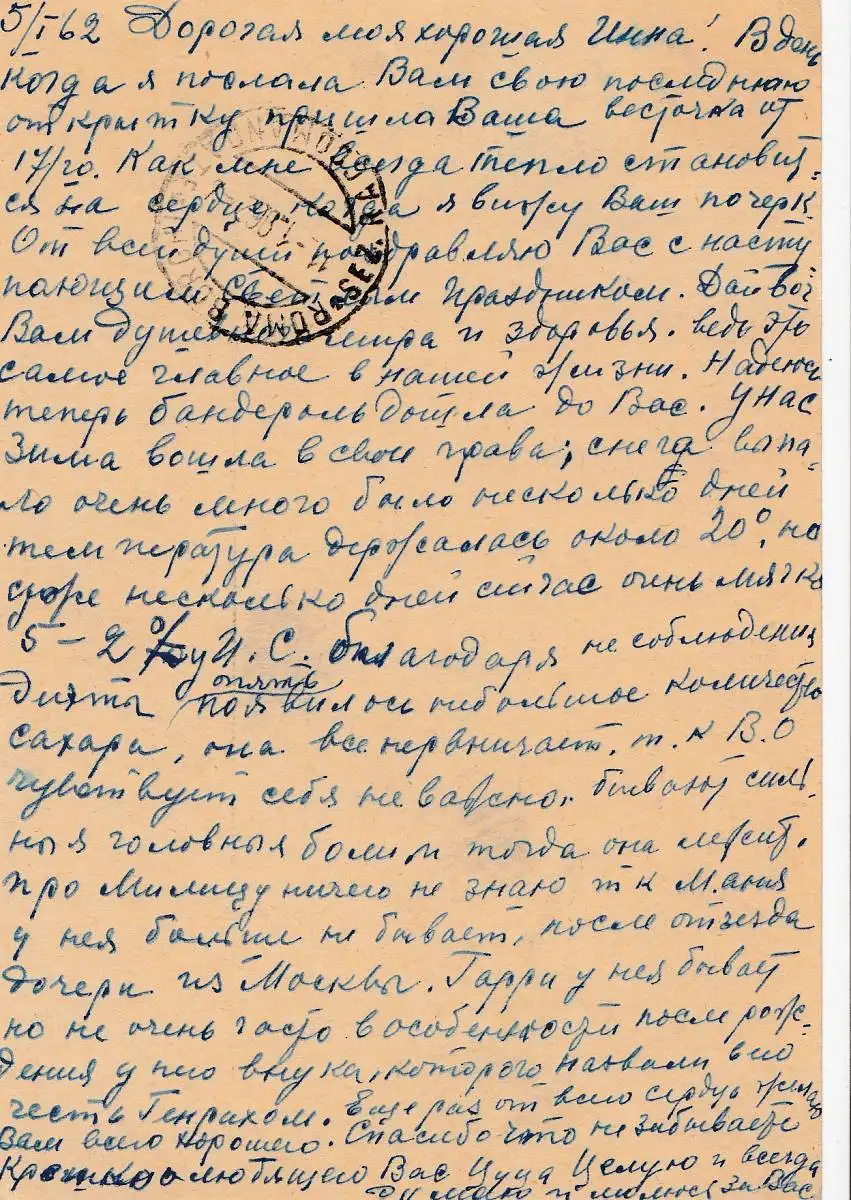 5/I 62 Дорогая моя хорошая Инна! В день
когда я послала Вам свою последнюю
открытку пришла Ваша весточка от
17/го. Как мне всегда тепло становит-
ся на сердце когда я вижу Ваш почерк.
От всей души поздравляю Вас с насту
пающим Светлым праздником. Дай Бог
Вам душевн мира и здоровья. ведь это
самое главное в нашей жизни. Надеюсь
теперь бандероль дошла до Вас. У нас
Зима вошла в свои права; снега выпа-
ло очень много было несколько дней
температура держалась около 20°, но
уже несколько дней сейчас очень мягко
5 – 2° У И. С. благодаря не соблюдения
диэты опять появилось небольшое количество
сахара, она все нервничает. т. к В.О
чувствует себя не важно. бывают силь-
ныя головныя боли и тогда она лежит.
про Милицу ничего не знаю т к М. Аня
у нея больше не бывает, после отъезда
дочери из Москвы. Гарри у нея бывает
но не очень часто в особенности после рож-
дения у него внука, которого назвали в его
честь Генрихом. Еще раз от всего сердца желаю
Вам всего хорошего. Спасибо что не забываете
Крепко любящего Вас Цуца Целую и всегда
думаю и молюсь за Вас
ROMA BORGO